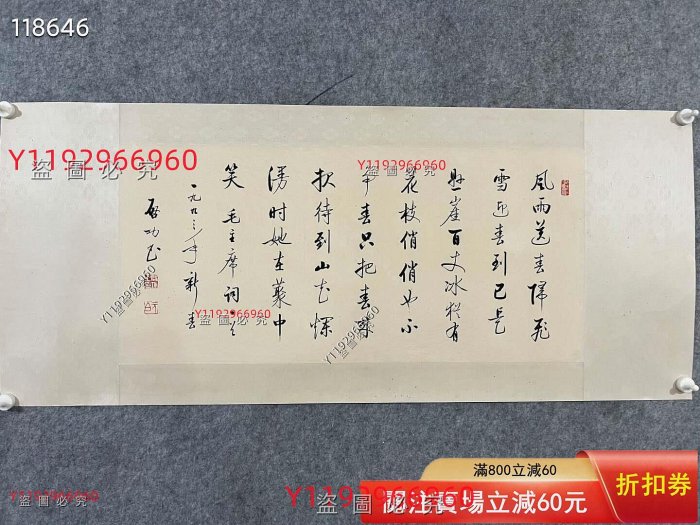 118646
風雨送春歸飛
雪迎春到已是
懸崖百丈冰猶有
花枝俏俏也不
爭春只把春來
报待到山花爛
漫时她在叢中
笑 毛主席詞
一九九三年新春
启功书
Y1192966960
盜圖必究
Y1192966960
盜圖必究
Y1192966960
盜圖必究
Y1192966960
盜圖必究
Y1192966960
盜圖必究
Y1192966960
盜圖必究
Y1192966960
盜圖必究
滿800立減60
關注賣場立減60元
折扣券